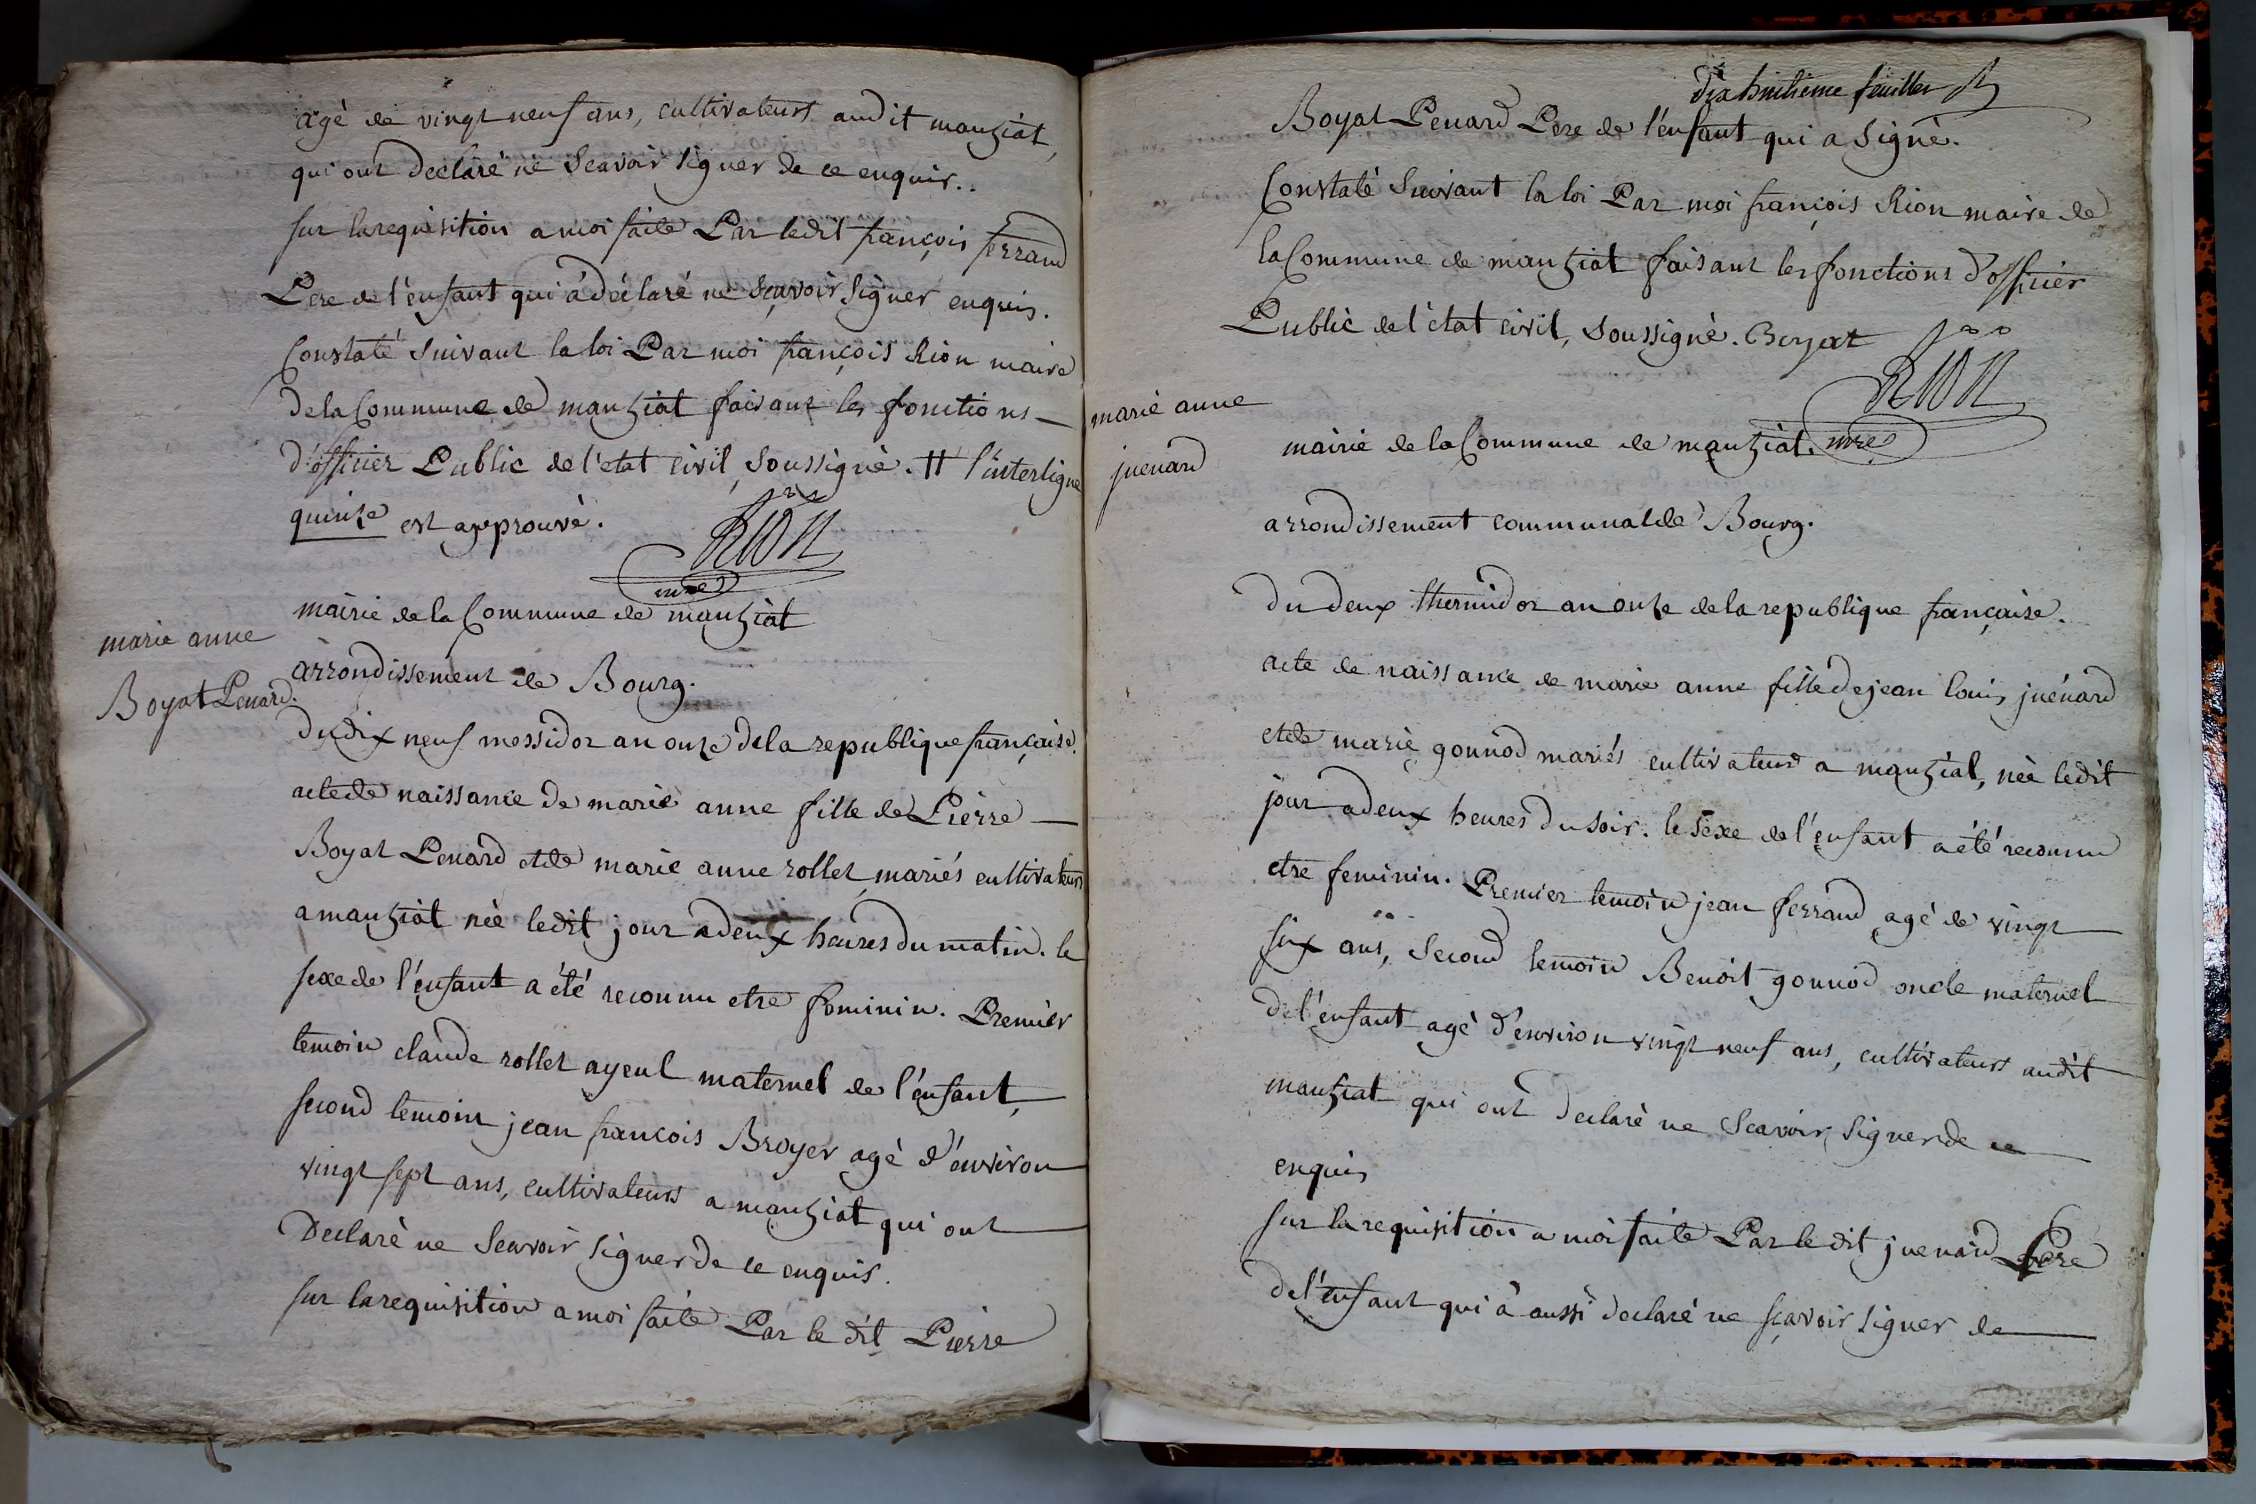 agé de vingt neuf ans, cultivateurs audit manziat,
qui ont declaré ne Scavoir signer de ce enquis..
sur la requisition a moi faite Par ledit françois ferrand
Pere de l'enfant qui a déclaré ne sçavoir signer enquis.
Constaté suivant la loi Par moi françois Rion maire
de la Commune de manziat faisant les fonctions
d'officier Public de l'etat civil, soussigné. # l'interligne
quinze est approuvé.
Rion
mre
marie anne
Boyat Penard.
mairie de la Commune de manziat
arrondissement de Bourg.
du dix neuf messidor an onze de la republique française.
acte de naissance de marie anne fille de Pierre
Boyat Penard et de marie anne rollet mariés cultivateurs
a manziat née ledit jour a deux heures du matin. le
sexe de l'enfant a été reconnu etre feminin. Premier
temoin claude rollet ayeul maternel de l'enfant,
second temoin jean françois Broyer agé d'environ
vingt sept ans, cultivateurs a manziat qui ont
Declaré ne Scavoir signer de ce enquis.
sur la requisition a moi faite Par le dit Pierre
dix huitieme feuillet
Boyat Penard Pere de l'enfant qui a signé.
Constaté suivant la loi Par moi françois Rion maire de
la Commune de manziat faisant les fonctions d'officier
Public de l'état civil, soussigné. Boyat
Rion
mre
marie anne
juenard
mairie de la Commune de manziat.
arrondissement communal de Bourg.
du deux thermidor an onze de la republique française.
acte de naissance de marie anne fille de jean louis juénard
et de marie gonnod mariés cultivateurs a manziat, née ledit
jour a deux heures du soir. le sexe de l'enfant a été reconnu
etre feminin. Premier temoin jean ferrand agé de vingt
six ans, Second temoin Benoit gonnod oncle maternel
de l'enfant agé d'environ vingt neuf ans, cultivateurs audit
manziat qui ont declaré ne Scavoir signer de ce
enquis
sur la requisition a moi faite Par le dit juenard Pere
de l'enfant qui a aussi declaré ne sçavoir signer de